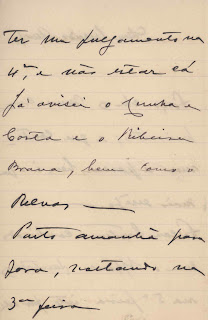 ter um julgamento na
4ª, e não estar cá
Já avisei o Cunha e
Costa e o Ribeira
Brava, bem como o
Relvas —
Parto amanhã para
fora, voltando na
3ª feira